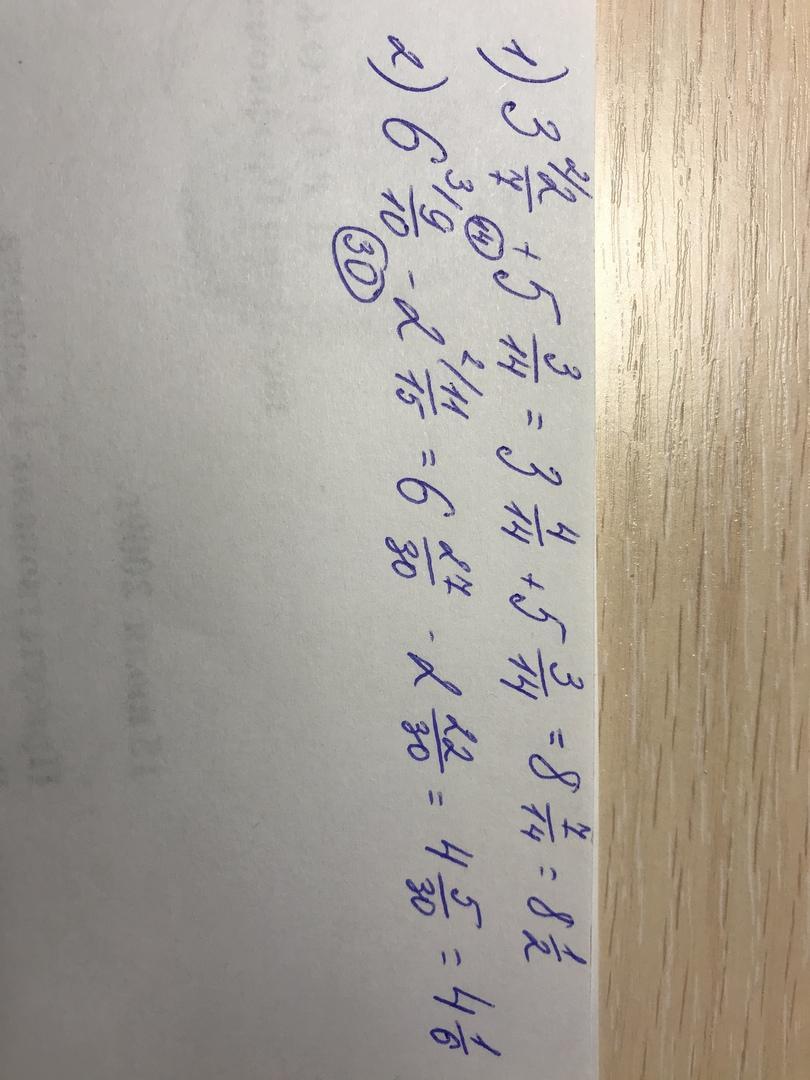 1) 3 2/ 2/7 + 5 3/14 = 3 4/14 + 5 3/14 = 8 7/14 = 8 1/2
14
2) 6 3/ 9/10 - 2 2/ 11/15 = 6 27/30 - 2 22/30 = 4 5/30 = 4 1/6
30